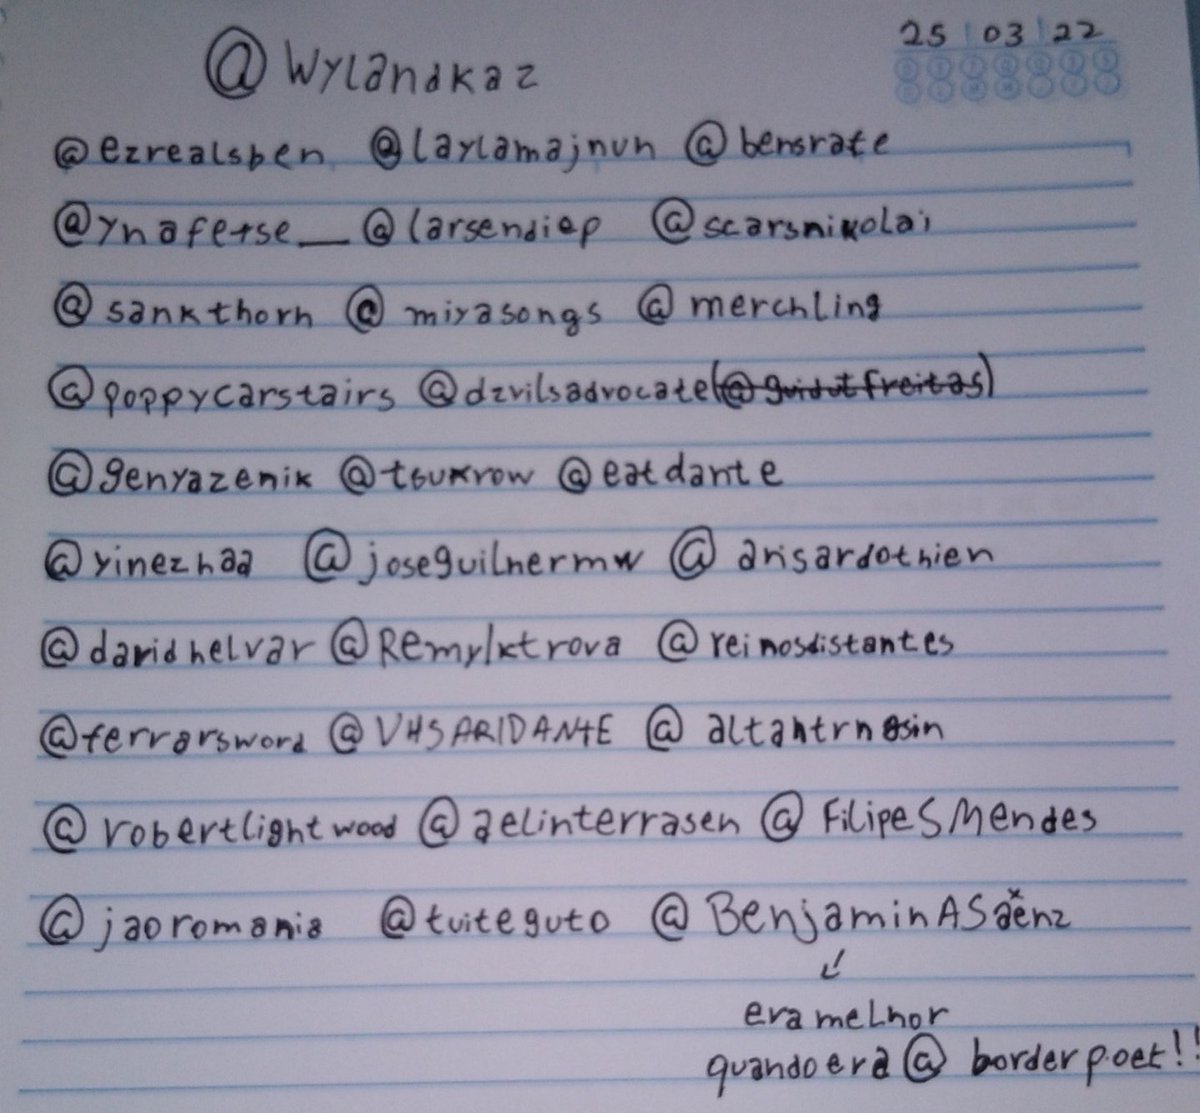 25 | 03 | 22
@Wylandkaz
@ezrealsben @laylamajnun @bensrate
@ynafetse__ @larsendiep @scarsnikolai
@sankthorn @miyasongs @merchling
@poppycarstairs @dzvilsadvocate (@guidutfreitas)
@genyazenik @tsukrow @eatdante
@yinezhaa @joseguilhermw @arisardothien
@daridhelvar @Remylktrova @reinosdistantes
@ferrarsword @VHSARIDANTE @altantrnosin
@robertlightwood @aelinterrasen @FilipeSMendes
@jaoromania @tuiteguto @BenjaminASaenz
era melhor
quando era @borderpoet!!